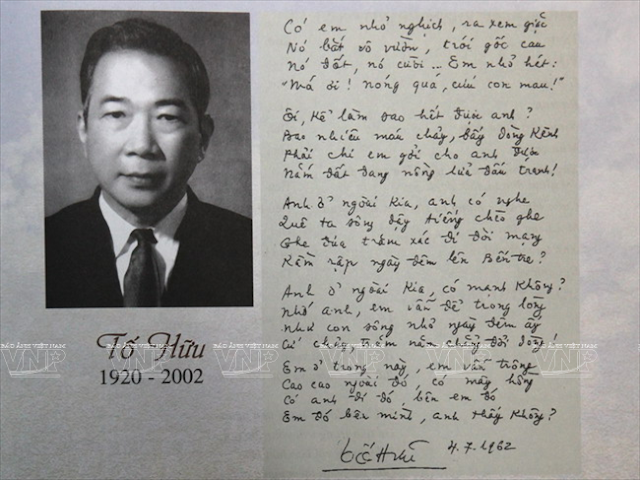 Có em nhỏ nghịch, ra xem giặc
Nó bắt vô vườn, trói gốc cau
Nó đốt, nó cười... Em nhỏ hét:
"Má ơi! nóng quá, cứu con mau!"
Ôi, kể làm sao hết được anh?
Bao nhiêu máu chảy, bấy dòng kênh
Phải chi em gởi cho anh được
Nắm đất đang nồng lửa đấu tranh!
Anh ở ngoài kia, anh có nghe
Quê ta sông dậy tiếng chèo ghe
Ghe đưa trăm xác đi đòi mạng
Rầm rập ngày đêm lên Bến Tre?
Anh ở ngoài kia, có mạnh không?
Nhớ anh, em vẫn để trong lòng
Như con sông nhỏ ngày đêm ấy
Cứ chảy trăm năm chẳng đổi dòng!
Em ở trong này, em vẫn trông
Cao cao ngoài đó, có mây hồng
Có anh đi đó, bên em đó
Em đó bên mình, anh thấy không?
Tố Hữu 4.7.1962
Tố Hữu
1920 - 2002
BÁO ẢNH VIỆT NAM
VNP
BÁO ẢNH VIỆT NAM
VNP
BÁO ẢNH VIỆT NAM
VNP